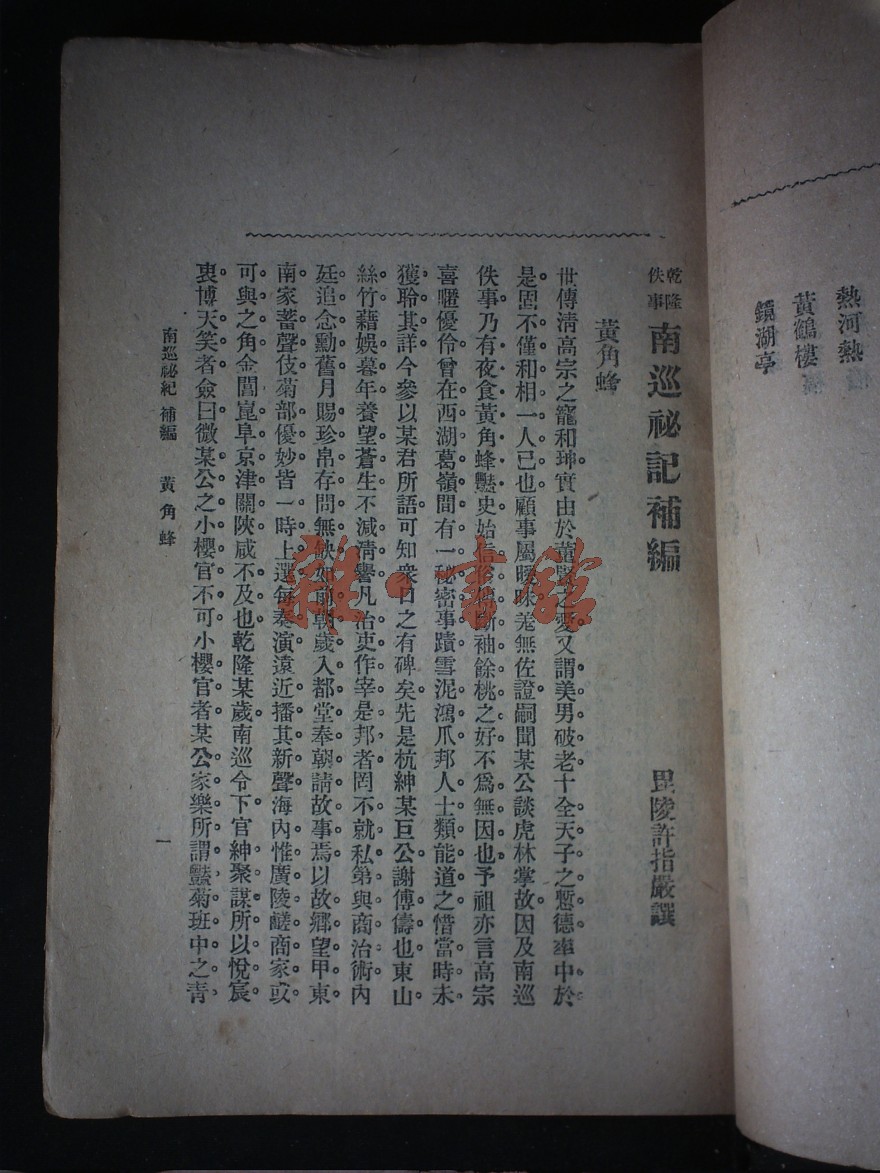 熱河熱
黃鶴樓
鏡湖亭
乾隆佚事 南巡祕記補編 毘陵許指嚴譔
黃角蜂
世傳淸高宗之寵和珅。實由於董賢之愛。又謂美男破老。十全天子之慙德。率中於
是。固不僅和相一人已也。顧事屬曖昧。羌無佐證。嗣聞某公談虎林掌故。因及南巡
佚事。乃有夜食黃角蜂豔史。始信俗傳斷袖餘桃之好。不爲無因也。予祖亦言高宗
喜嬺優伶。曾在西湖葛嶺間有一秘密事蹟。雪泥鴻爪。邦人士類能道之。惜當時未
獲聆其詳。今參以某君所語。可知衆口之有碑矣。先是杭紳某巨公。謝傅儔也。東山
絲竹。藉娛暮年。養望蒼生。不減淸譽。凡治吏作宰是邦者。罔不就私第與商治術。內
廷追念勳舊。月賜珍帛。存問無缺。如前朝歲入都堂奉朝請故事焉。以故鄕望甲東
南。家蓄聲伎。菊部優妙。皆一時上選。每奏演。遠近播其新聲。海內惟廣陵鹺商家或
可與之角。金閶崑阜。京津關陝。咸不及也。乾隆某歲。南巡令下。官紳聚謀所以悅宸
衷博天笑者。僉曰。微某公之小櫻官不可。小櫻官者。某公家樂。所謂豔菊班中之靑
南巡祕紀 補編 黃角蜂
一
雜·書館